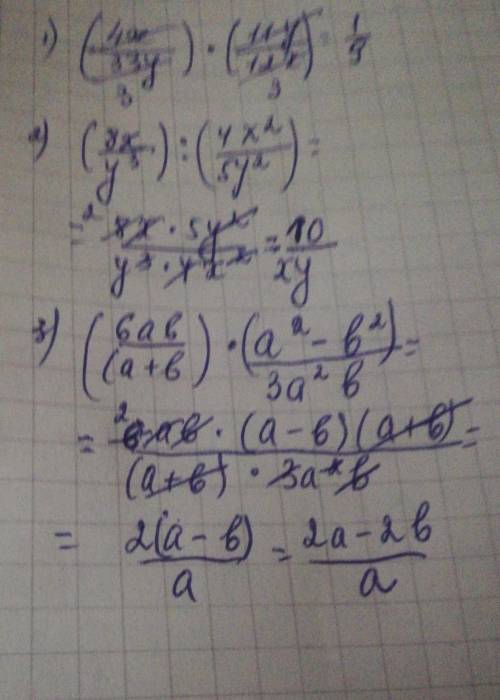 1) (4x/33y) · (11y/12x) = 1/9
3 3
2) (8x/y³) : (4x²/5y²) =
= ² 8x · 5y² / y³ · 4x² = 10/xy
3) (6ab/(a+b) · (a² - b²)/3a² b =
= ² 6ab · (a - b)(a+b) / (a+b) · 3a² b =
= 2(a - b)/a = 2a - 2b/a